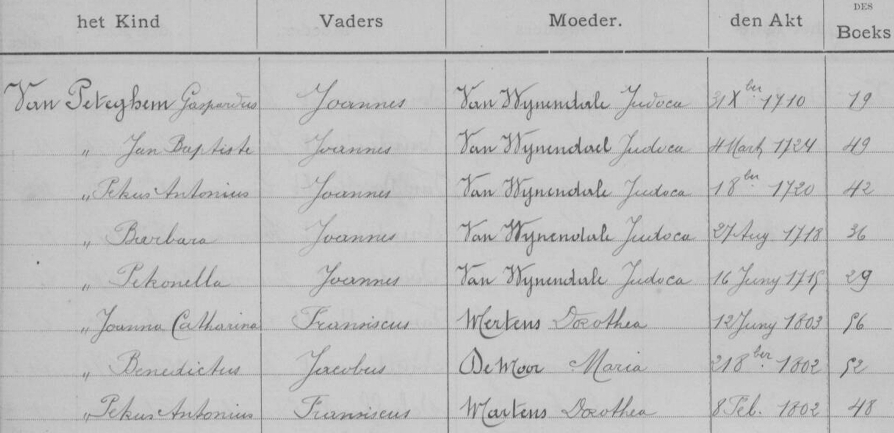 DES
het Kind Vaders Moeder. den Akt Boeks
Van Peteghem Gaspardus Joannes Van Wynendale Judoca 31 Xber 1710 19
„ Jan Baptiste Joannes Van Wynendael Judoca 4 Mart 1724 49
„ Petrus Antonius Joannes Van Wynendale Judoca 1 8ber 1720 42
„ Barbara Joannes Van Wynendale Judoca 27 Aug 1718 36
„ Petronella Joannes Van Wynendale Judoca 16 Juny 1715 29
„ Joanna Catharina Franciscus Mertens Dorothea 12 Juny 1803 96
„ Benedictus Jacobus De Moor Maria 21 8ber 1802 92
„ Petrus Antonius Franciscus Martens Dorothea 8 Feb. 1802 48